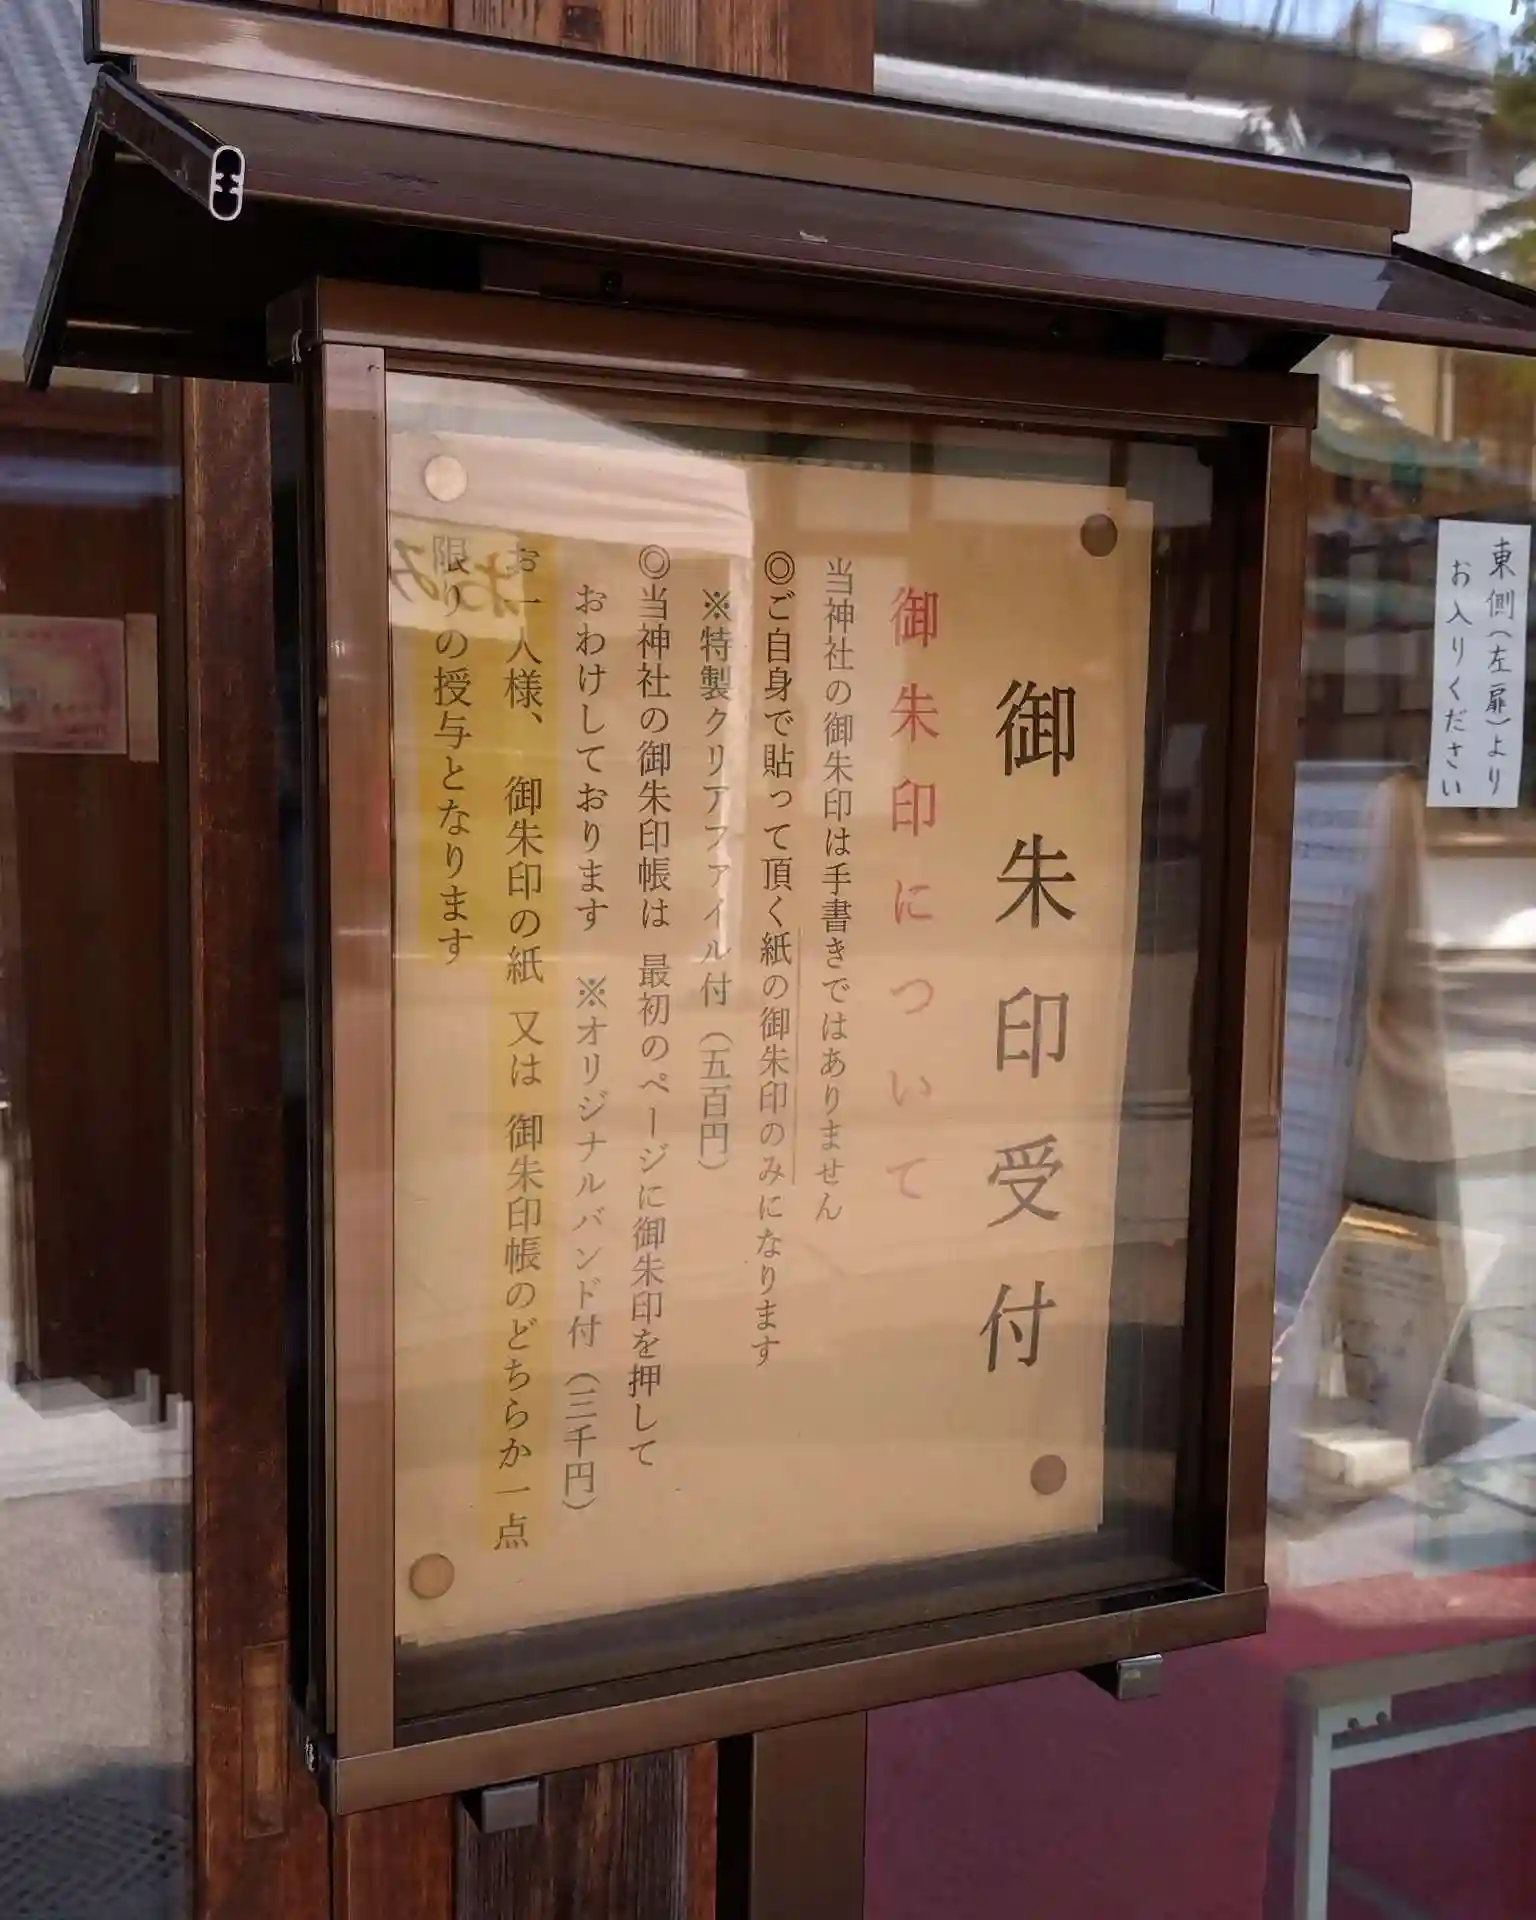 御朱印受付
御朱印について
当神社の御朱印は手書きではありません
◎ご自身で貼って頂く紙の御朱印のみになります
※特製クリアファイル付（五百円）
◎当神社の御朱印帳は 最初のページに御朱印を押して
おわけしております ※オリジナルバンド付（三千円）
お一人様、 御朱印の紙 又は 御朱印帳のどちらか一点
限りの授与となります
東側（左扉）より
お入りください